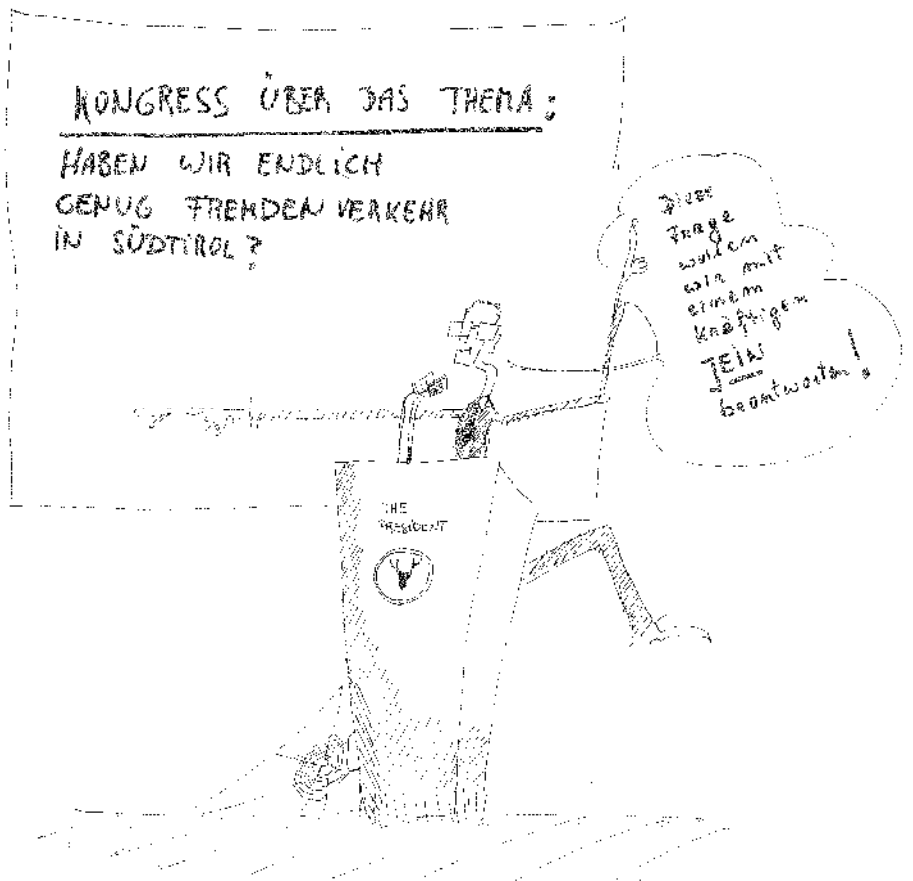 KONGRESS ÜBER DAS THEMA:
HABEN WIR ENDLICH
GENUG FREMDENVERKEHR
IN SÜDTIROL?
Diese
Frage
wollen
wir mit
einem
kräftigen
JEIN
beantworten!
THE
PRESIDENT